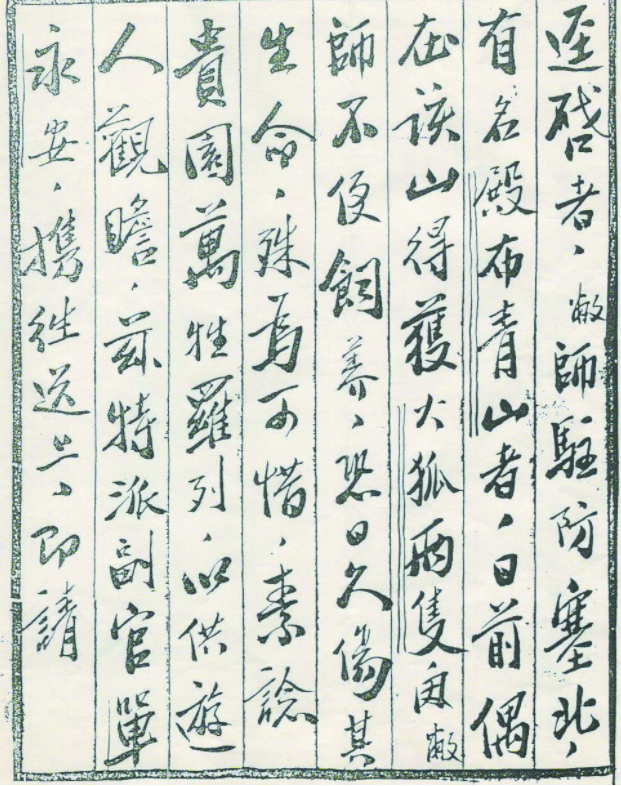 逕啓者、敝師駐防塞北、
有名殿布青山者、日前偶
在該山得獲大狐兩隻因敝
師不便飼養、恐日久傷其
生命、殊爲可惜、素諗
貴園萬牲羅列、以供遊
人觀瞻、茲特派副官單
永安、携往送上、即請